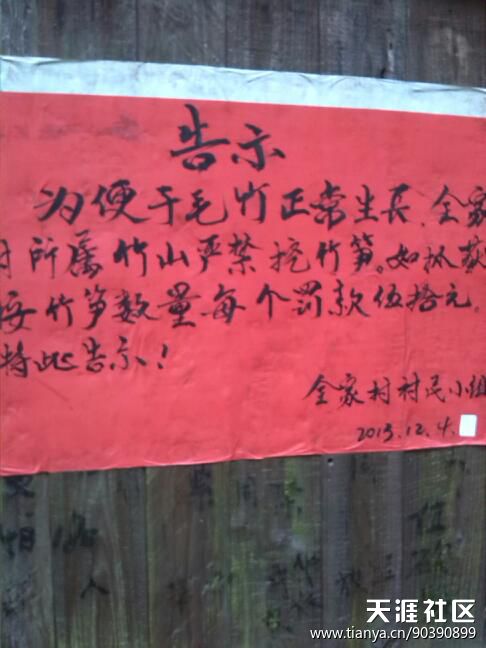 告示
为便于毛竹正常生长,全家
村所属竹山严禁挖竹笋。如抓获
按竹笋数量每个罚款伍拾元。
特此告示!
全家村村民小组
2013.12.4.
天涯社区
www.tianya.cn/90390899